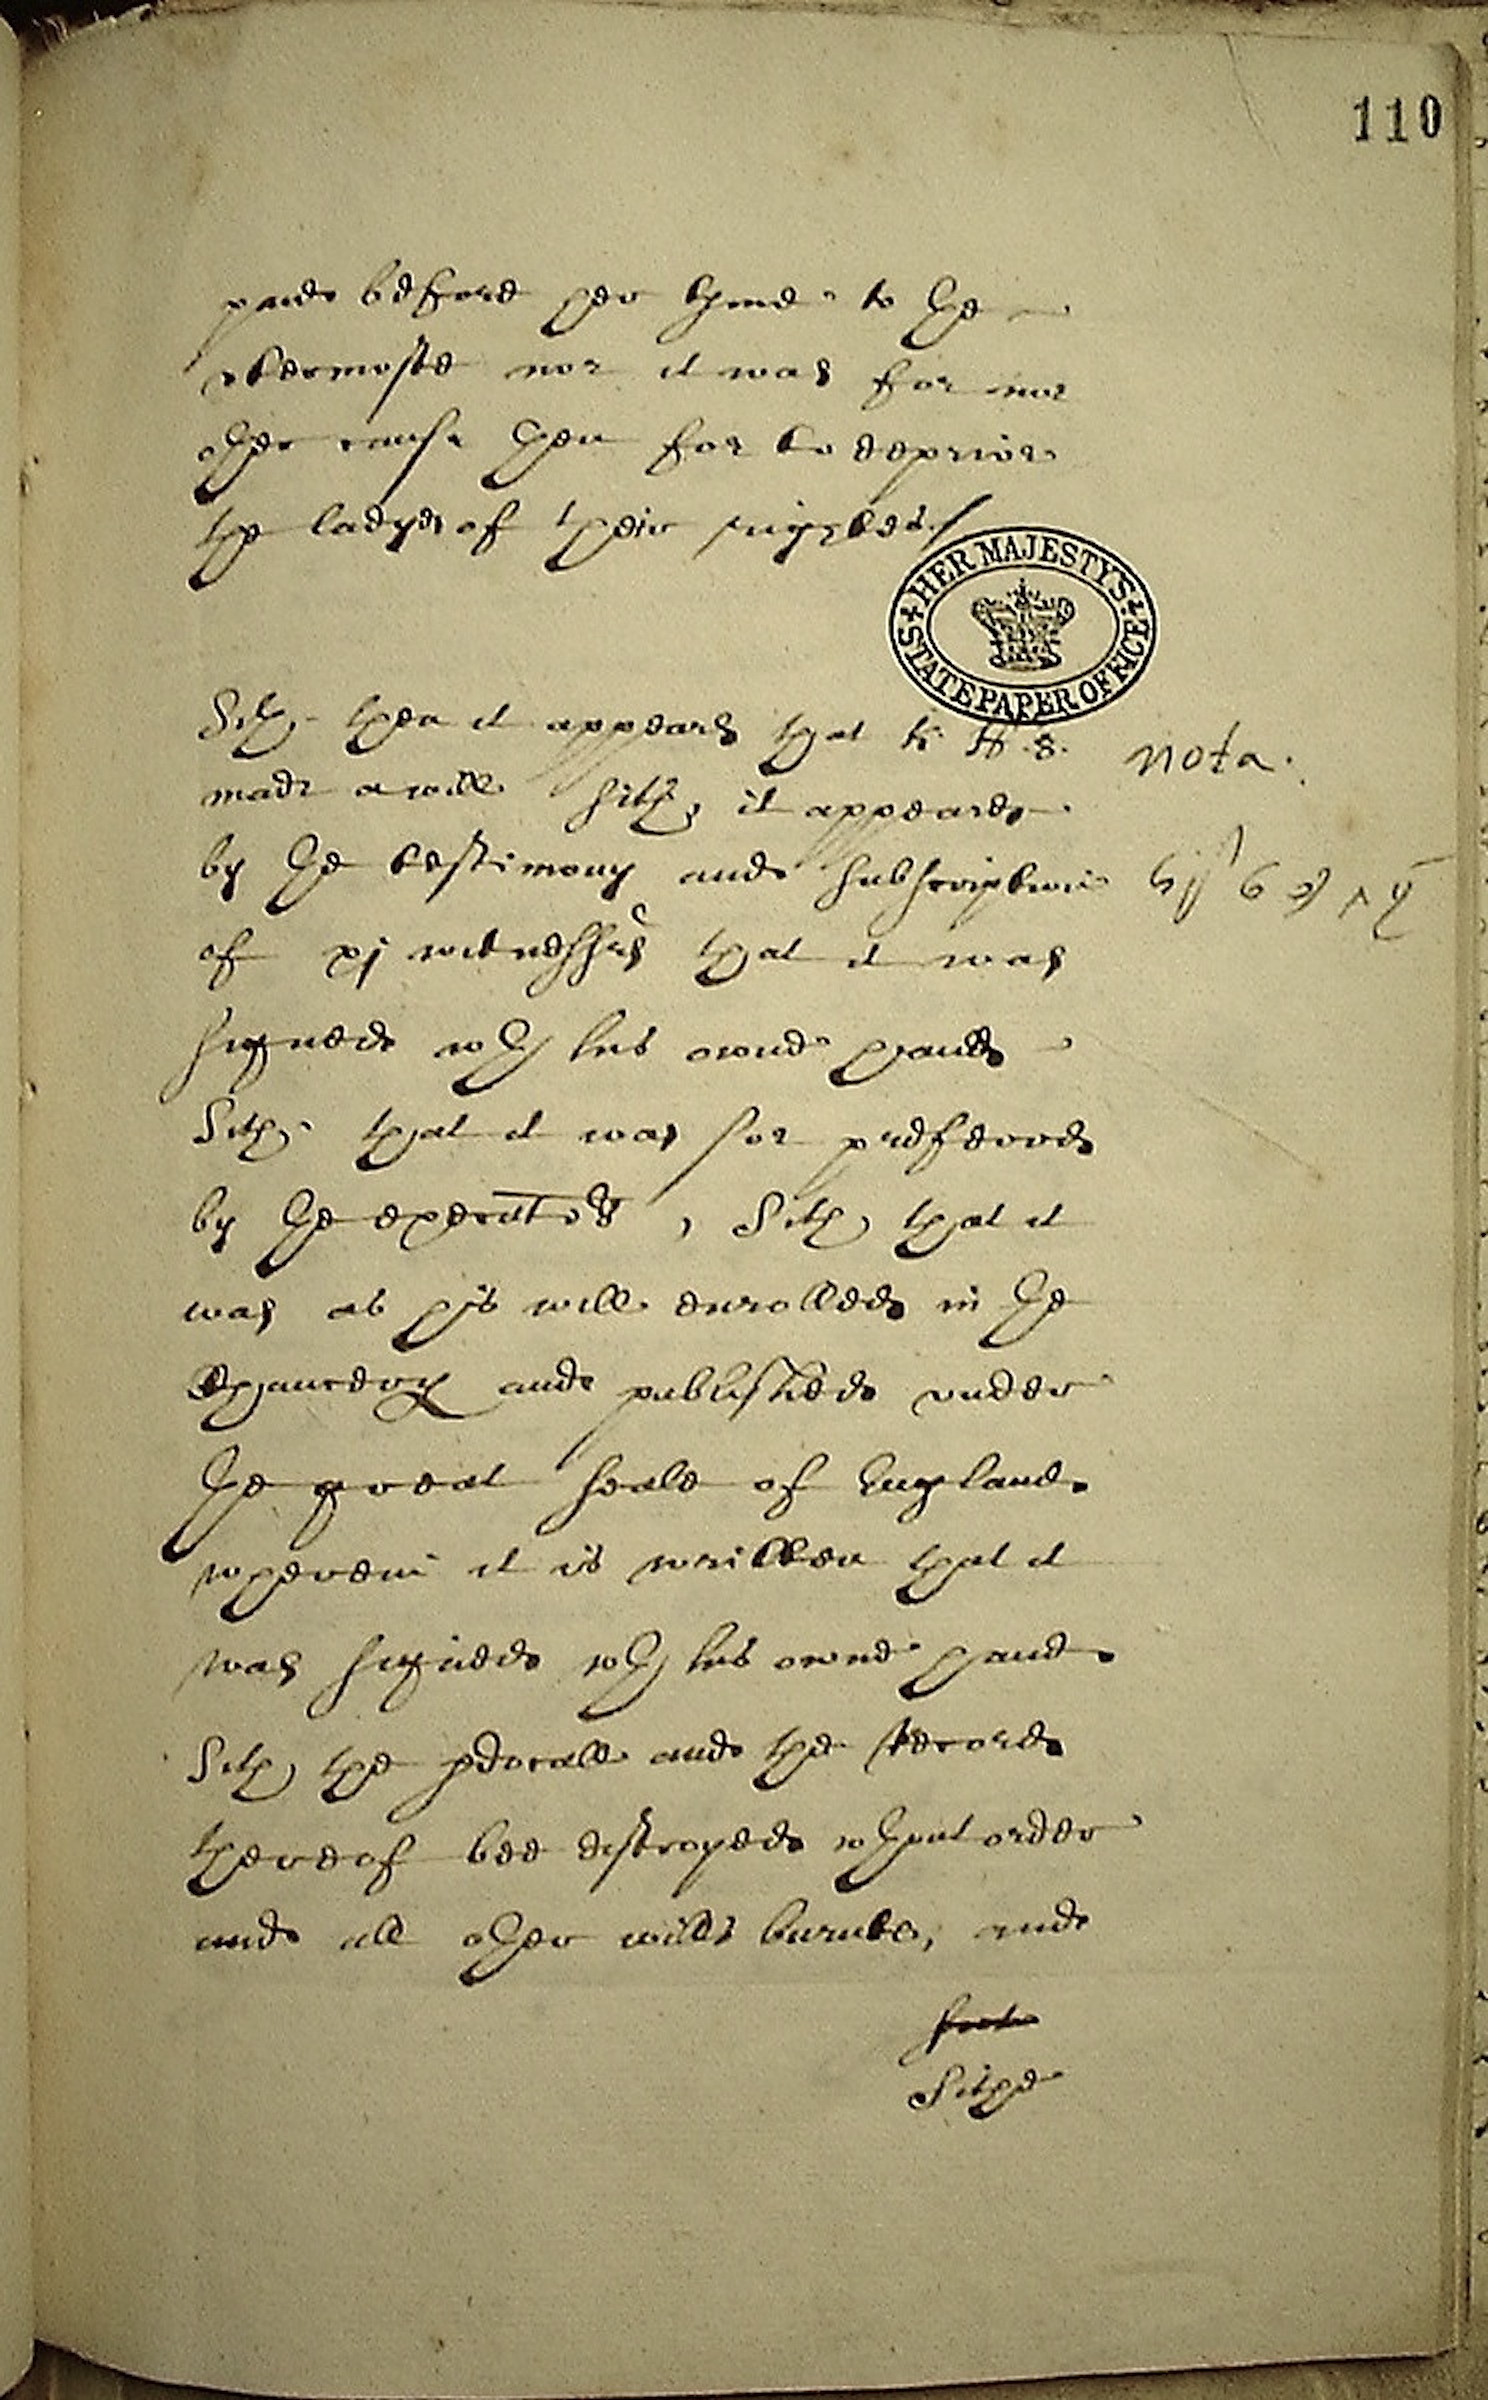 110
paide before her tyme to the
vttermoste nor it was for noe
other cause then for to depriue
the ladyes of their rightes /
HER MAJESTY'S STATE PAPER OFFICE
Sith then it appears that k. H. 8. nota.
made a will sith it appeares
by the testimony and subscription
of xj witnesses that it was
signed wth his owne hande
Sith that it was soe preferred
by the executors, Sith that it
was as his will enrolled in the
Chancery and published under
the great seale of England
wherein it is written that it
was signed wth his owne hand
Sith the and the Record
thereof bee distroyed whout order
and all other wills burnte, and
Sithe